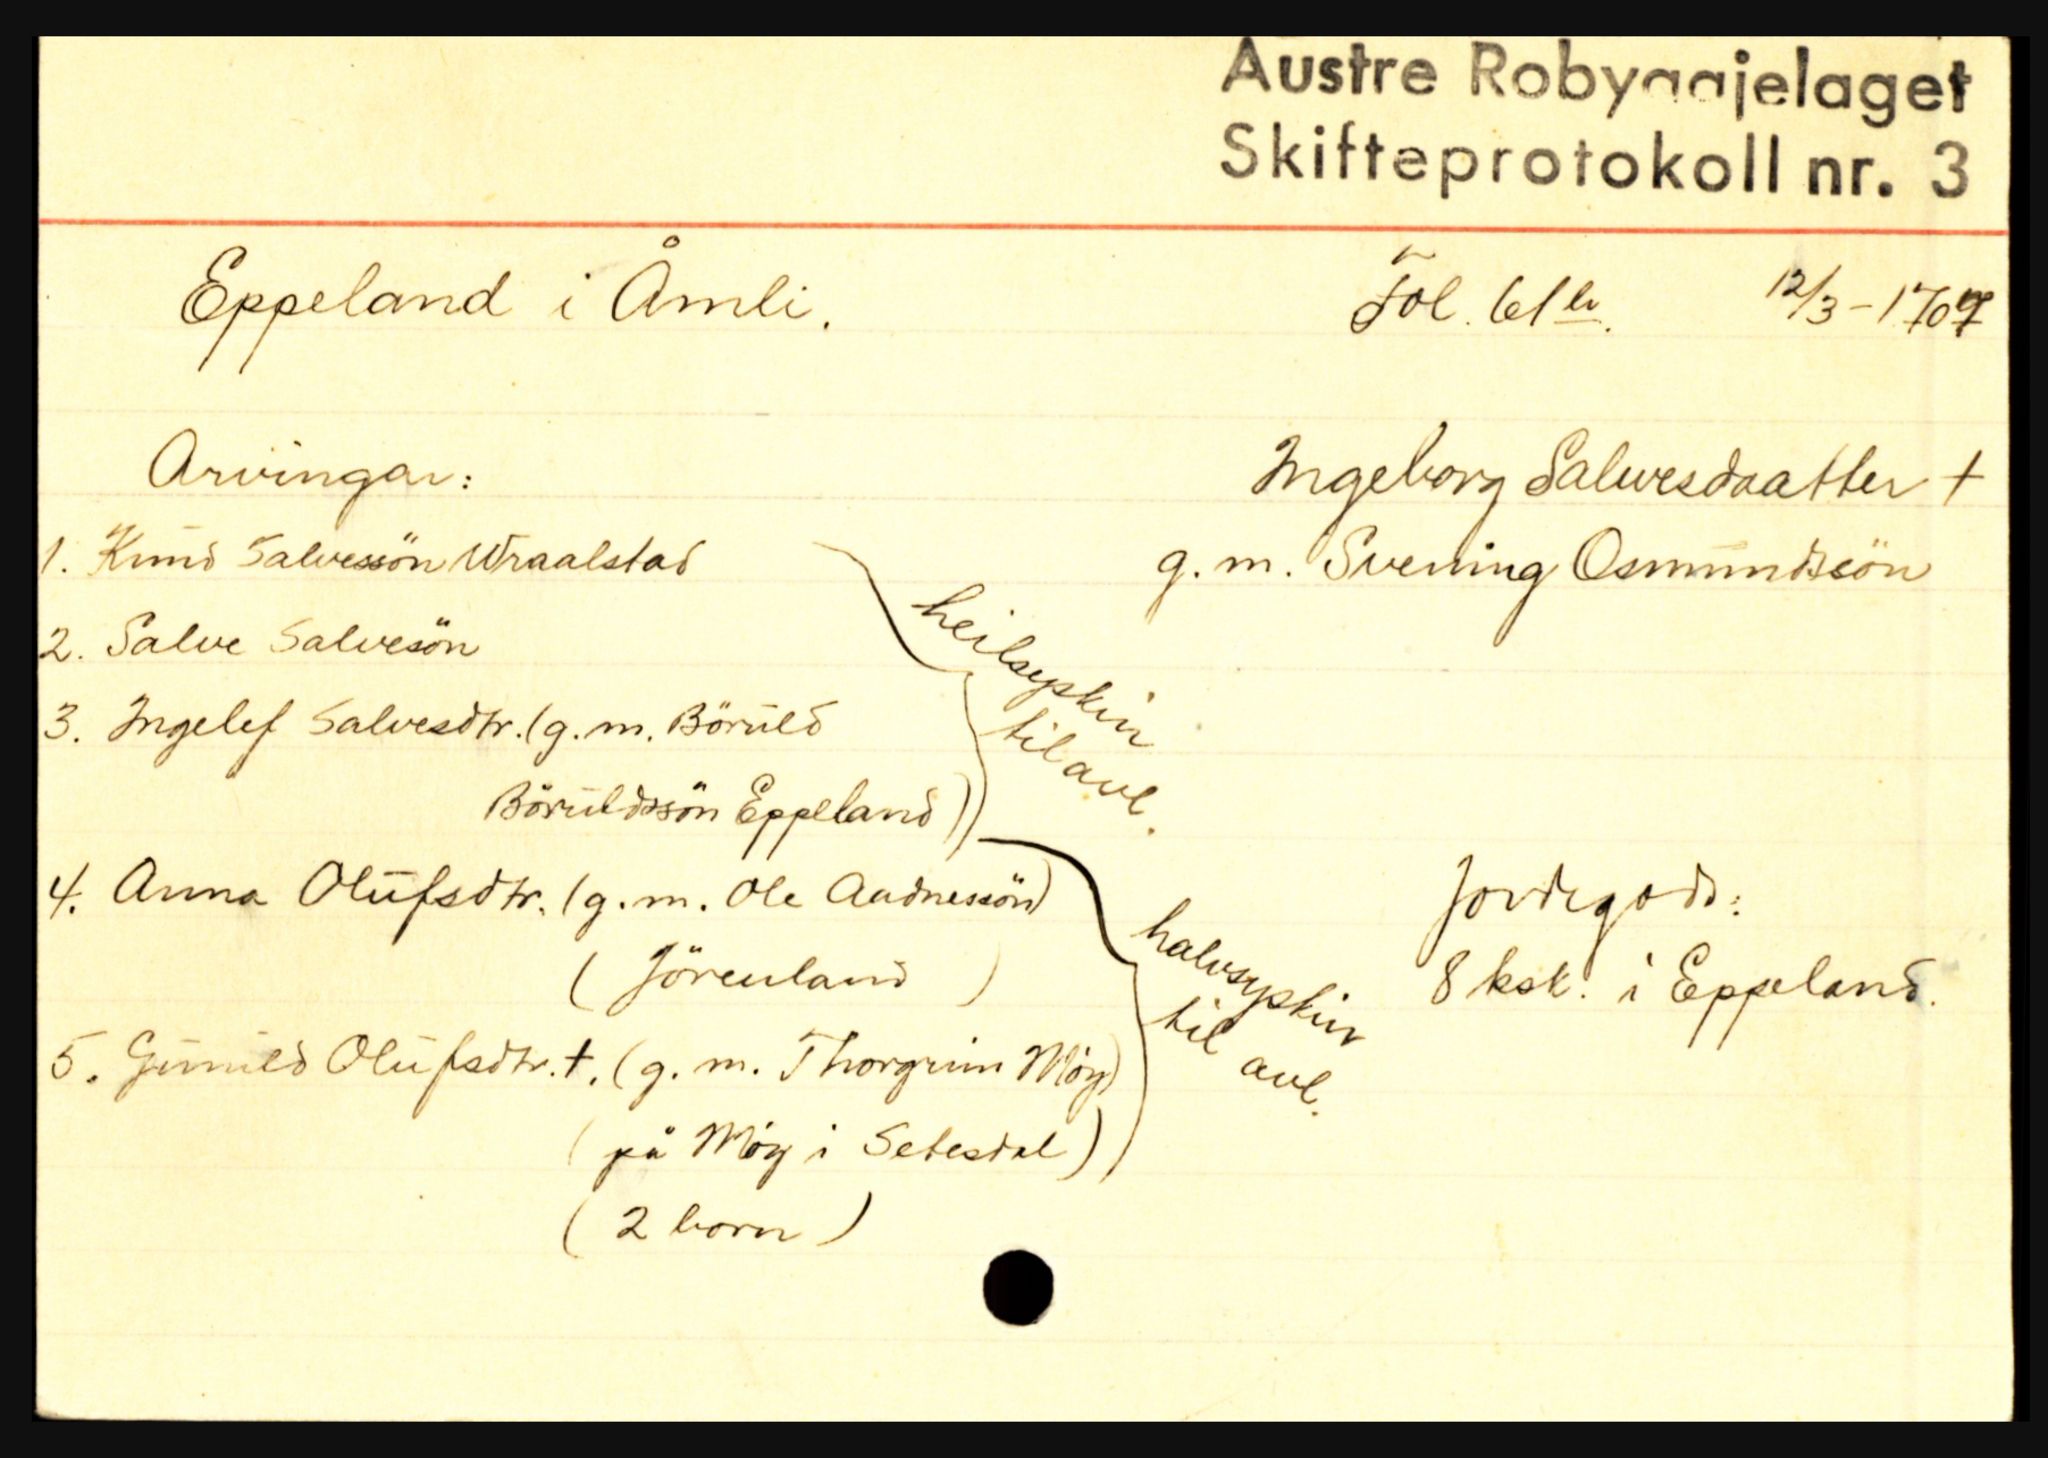 Austre Robyggjelaget
Skifteprotokoll nr. 3
Eppeland i Åmli. Fol. 61 b. 12/3-1707
Arvingar:
Ingeborg Salvesdaatter †
g. m. Svening Osmundssön
1. Knud Salvessön Wraalstad
2. Salve Salvesön
3. Ingelef Salvesdtr. (g. m. Böruld
Böruldssön Eppeland)
heilsyskin
til avl.
4. Anna Olufsdtr. (g. m. Ole Aadnessön)
( Jörenland )
5. Gunuld Olufsdtr. †. (g. m. Thorgrim Möy)
( på Möy i Setesdal )
( 2 born )
halvsyskin
til avl.
Jordegods:
8 ksk. i Eppeland.